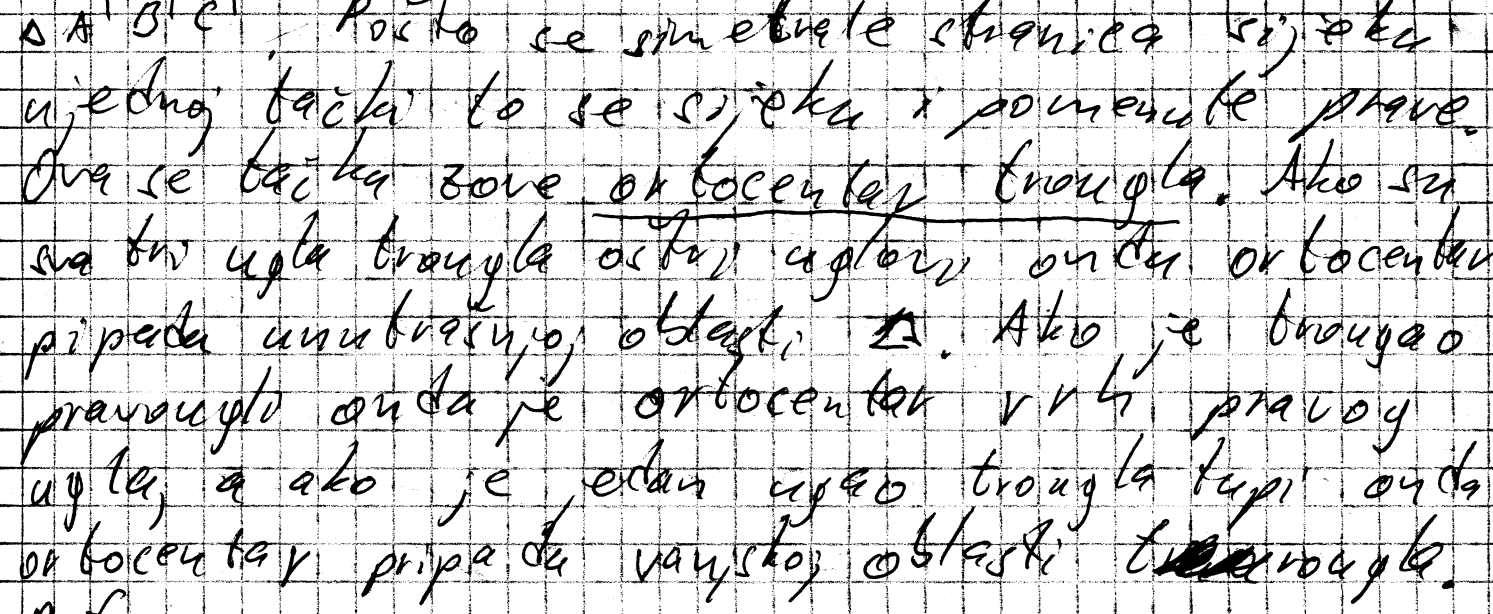 △ A' B' C'. Pošto se simetrale stranica sijeku
u jednoj tački to se sijeku i pomenute prave.
Ova se tačka zove ortocentar trougla. Ako su
sva tri ugla trougla oštri uglovi onda ortocentar
pipada unutrašnjoj oblasti △. Ako je trougao
pravougli onda je ortocentar vrh pravog
ugla, a ako je jedan ugao trougla tupi onda
ortocentar pripada vanjskoj oblasti trougla.